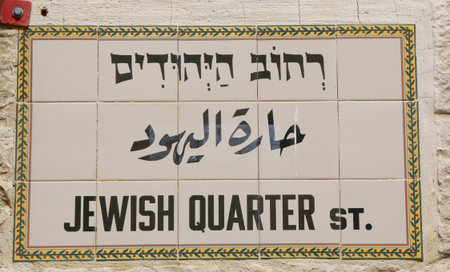 רְחוֹב הַיְּהוּדִים
حارة اليهود
JEWISH QUARTER ST.